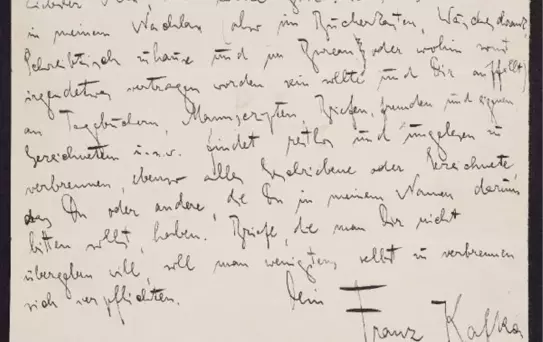 Liebster
in meinem Nachlass (also im Bücherkasten, Wäscheschrank,
Schreibtisch zuhause und im Bureau, oder wohin sonst
irgendetwas vertragen worden sein sollte und Dir auffällt)
an Tagebüchern, Manuscripten, Briefen, fremden und eignen,
Gezeichnetem u.s.w. findet restlos und ungelesen zu
verbrennen, ebenso alles Geschriebene oder Gezeichnete
das Du oder andere, die Du in meinem Namen darum
bitten sollst, haben. Briefe, die man Dir nicht
übergeben will, soll man wenigstens selbst zu verbrennen
sich verpflichten.
Dein Franz Kafka